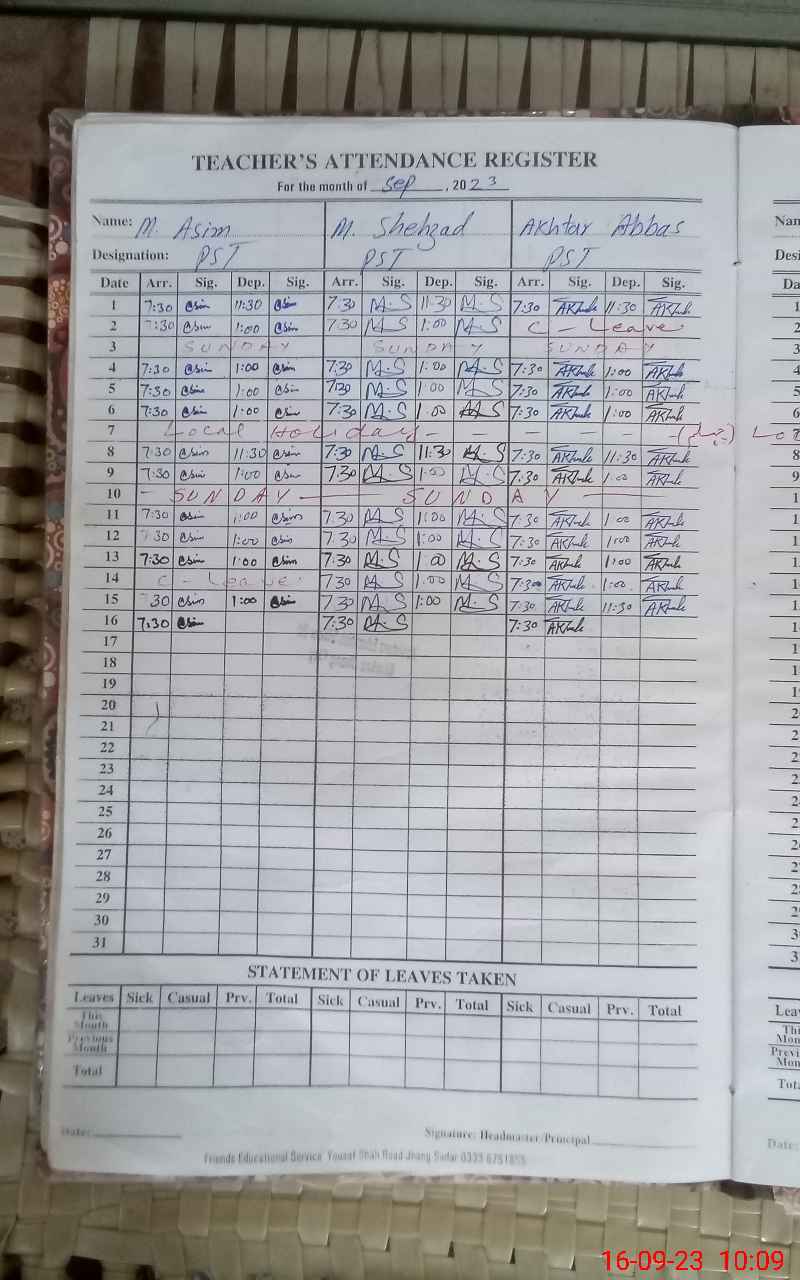 TEACHER'S ATTENDANCE REGISTER
For the month of Sep, 2023
Name: M. Asim M. Shehzad Akhtar Abbas
Designation: PST PST PST
Date Arr. Sig. Dep. Sig. Arr. Sig. Dep. Sig. Arr. Sig. Dep. Sig.
1 7:30 Asim 11:30 Asim 7:30 M.S 11:30 M.S 7:30 11:30
2 7:30 Asim 1:00 Asim 7:30 M.S 1:00 M.S C - Leave
3 SUNDAY SUNDAY SUNDAY
4 7:30 Asim 1:00 Asim 7:30 M.S 1:00 M.S 7:30 1:00
5 7:30 Asim 1:00 Asim 7:30 M.S 1:00 M.S 7:30 1:00
6 7:30 Asim 1:00 Asim 7:30 M.S 1:00 M.S 7:30 1:00
7 Local Holiday - - - - -
8 7:30 Asim 11:30 Asim 7:30 M.S 11:30 M.S 7:30 11:30
9 7:30 Asim 1:00 Asim 7:30 M.S 1:00 M.S 7:30 1:00
10 - SUNDAY - SUNDAY -
11 7:30 Asim 1:00 Asim 7:30 M.S 1:00 M.S 7:30 1:00
12 7:30 Asim 1:00 Asim 7:30 M.S 1:00 M.S 7:30 1:00
13 7:30 Asim 1:00 Asim 7:30 M.S 1:00 M.S 7:30 1:00
14 C - Leave 7:30 M.S 1:00 M.S 7:30 1:00
15 7:30 Asim 1:00 Asim 7:30 M.S 1:00 M.S 7:30 11:30
16 7:30 Asim 7:30 M.S 7:30
17
18
19
20
21
22
23
24
25
26
27
28
29
30
31
STATEMENT OF LEAVES TAKEN
Leaves Sick Casual Prv. Total Sick Casual Prv. Total Sick Casual Prv. Total
This Month
Previous Month
Total
Date: Signature: Headmaster/Principal
Friends Educational Service Yousaf Shah Road Jhang Sadar 0333 6751855
16-09-23 10:09